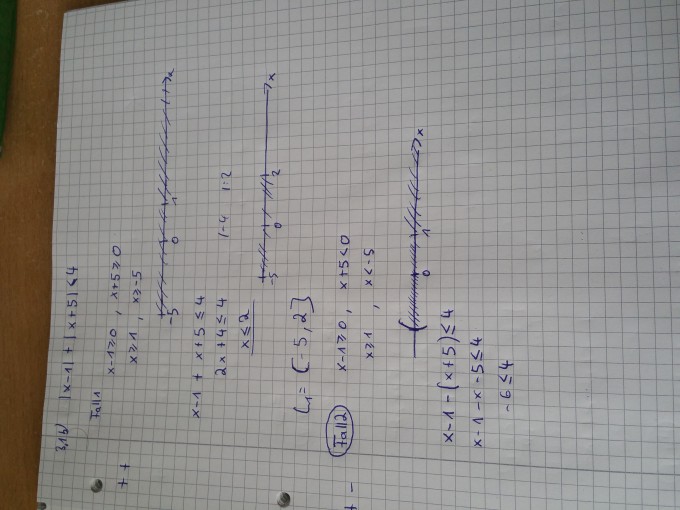 3,1b) |x-1| + |x+5| ≤ 4
Fall 1
+ + x-1≥0 , x+5≥0
x≥1 , x≥-5
-5 0 1 x
x-1 + x+5 ≤ 4
2x+4 ≤ 4 |-4 |:2
x ≤ 2
-5 0 2 x
L₁= [-5,2]
Fall 2
+ - x-1≥0 , x+5<0
x≥1 , x<-5
0 1 x
x-1-(x+5) ≤ 4
x-1-x-5 ≤ 4
-6 ≤ 4